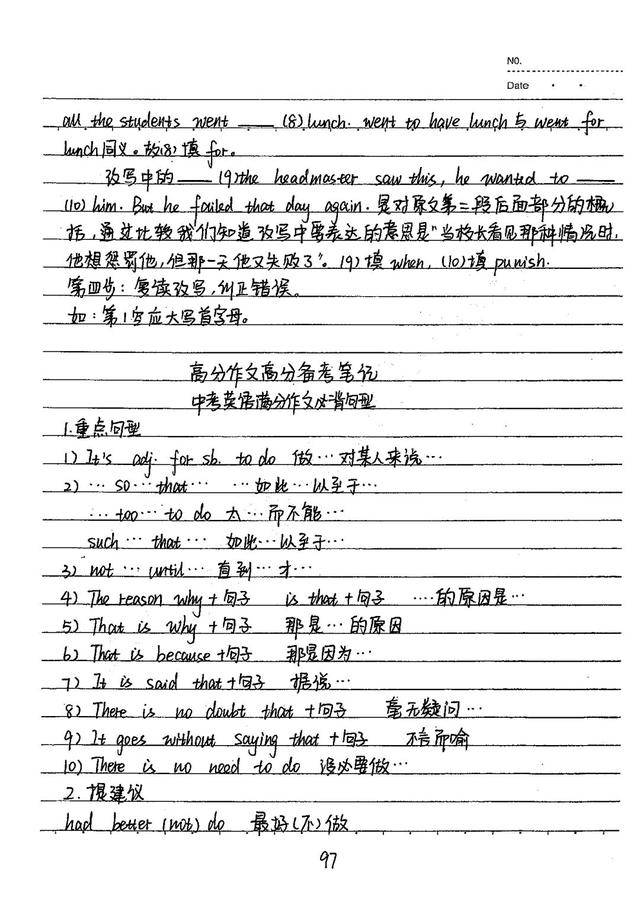 No.
Date
all the students went ___ (8) lunch. went to have lunch 与 went for
lunch同义。故(8)填 for。
改写中的 ___ (9) the headmaster saw this, he wanted to ___
(10) him. But he failed that day again. 是对原文第二段后面部分的概
括,通过比较我们知道改写中要表达的意思是"当校长看见那种情况时,
他想惩罚他,但那一天他又失败了"。(9)填 when, (10)填 punish.
第四步:复读改写,纠正错误。
如:第1空应大写首字母。
高分作文高分备考笔记
中考英语满分作文必背句型
1.重点句型
1) It's adj. for sb. to do 做…对某人来说…
2) … so … that … …如此…以至于…
… too … to do 太…而不能…
such … that … 如此…以至于…
3) not … until … 直到…才…
4) The reason why + 句子 is that + 句子 ….的原因是…
5) That is why + 句子 那是…的原因
6) That is because + 句子 那是因为…
7) It is said that + 句子 据说…
8) There is no doubt that + 句子 毫无疑问…
9) It goes without saying that + 句子 不言而喻
10) There is no need to do 没必要做…
2. 提建议
had better (not) do 最好(不)做
97